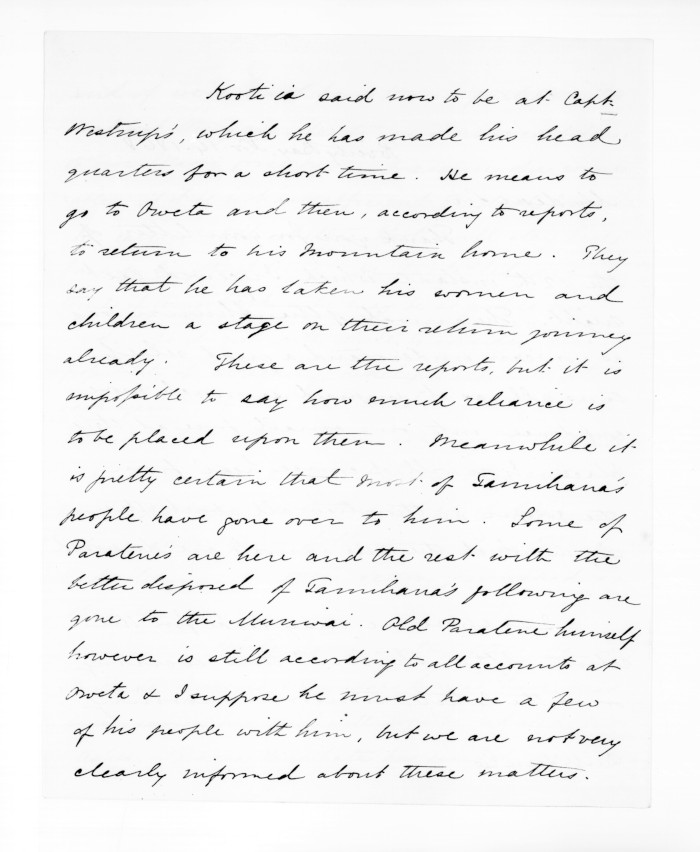 Kooti is said now to be at Capt
Westrup's, which he has made his head
quarters for a short time. He means to
go to Oweta and then, according to reports,
to return to his Mountain home. They
say that he has taken his women and
children a stage on their return journey
already. These are the reports, but it is
impossible to say how much reliance is
to be placed upon them. Meanwhile it
is pretty certain that most of Tamihana's
people have gone over to him. Some of
Paratene's are here and the rest with the
better disposed of Tamihana's following are
gone to the Muriwai. Old Paratene himself
however is still according to all accounts at
Oweta & I suppose he must have a few
of his people with him, but we are not very
clearly informed about these matters.